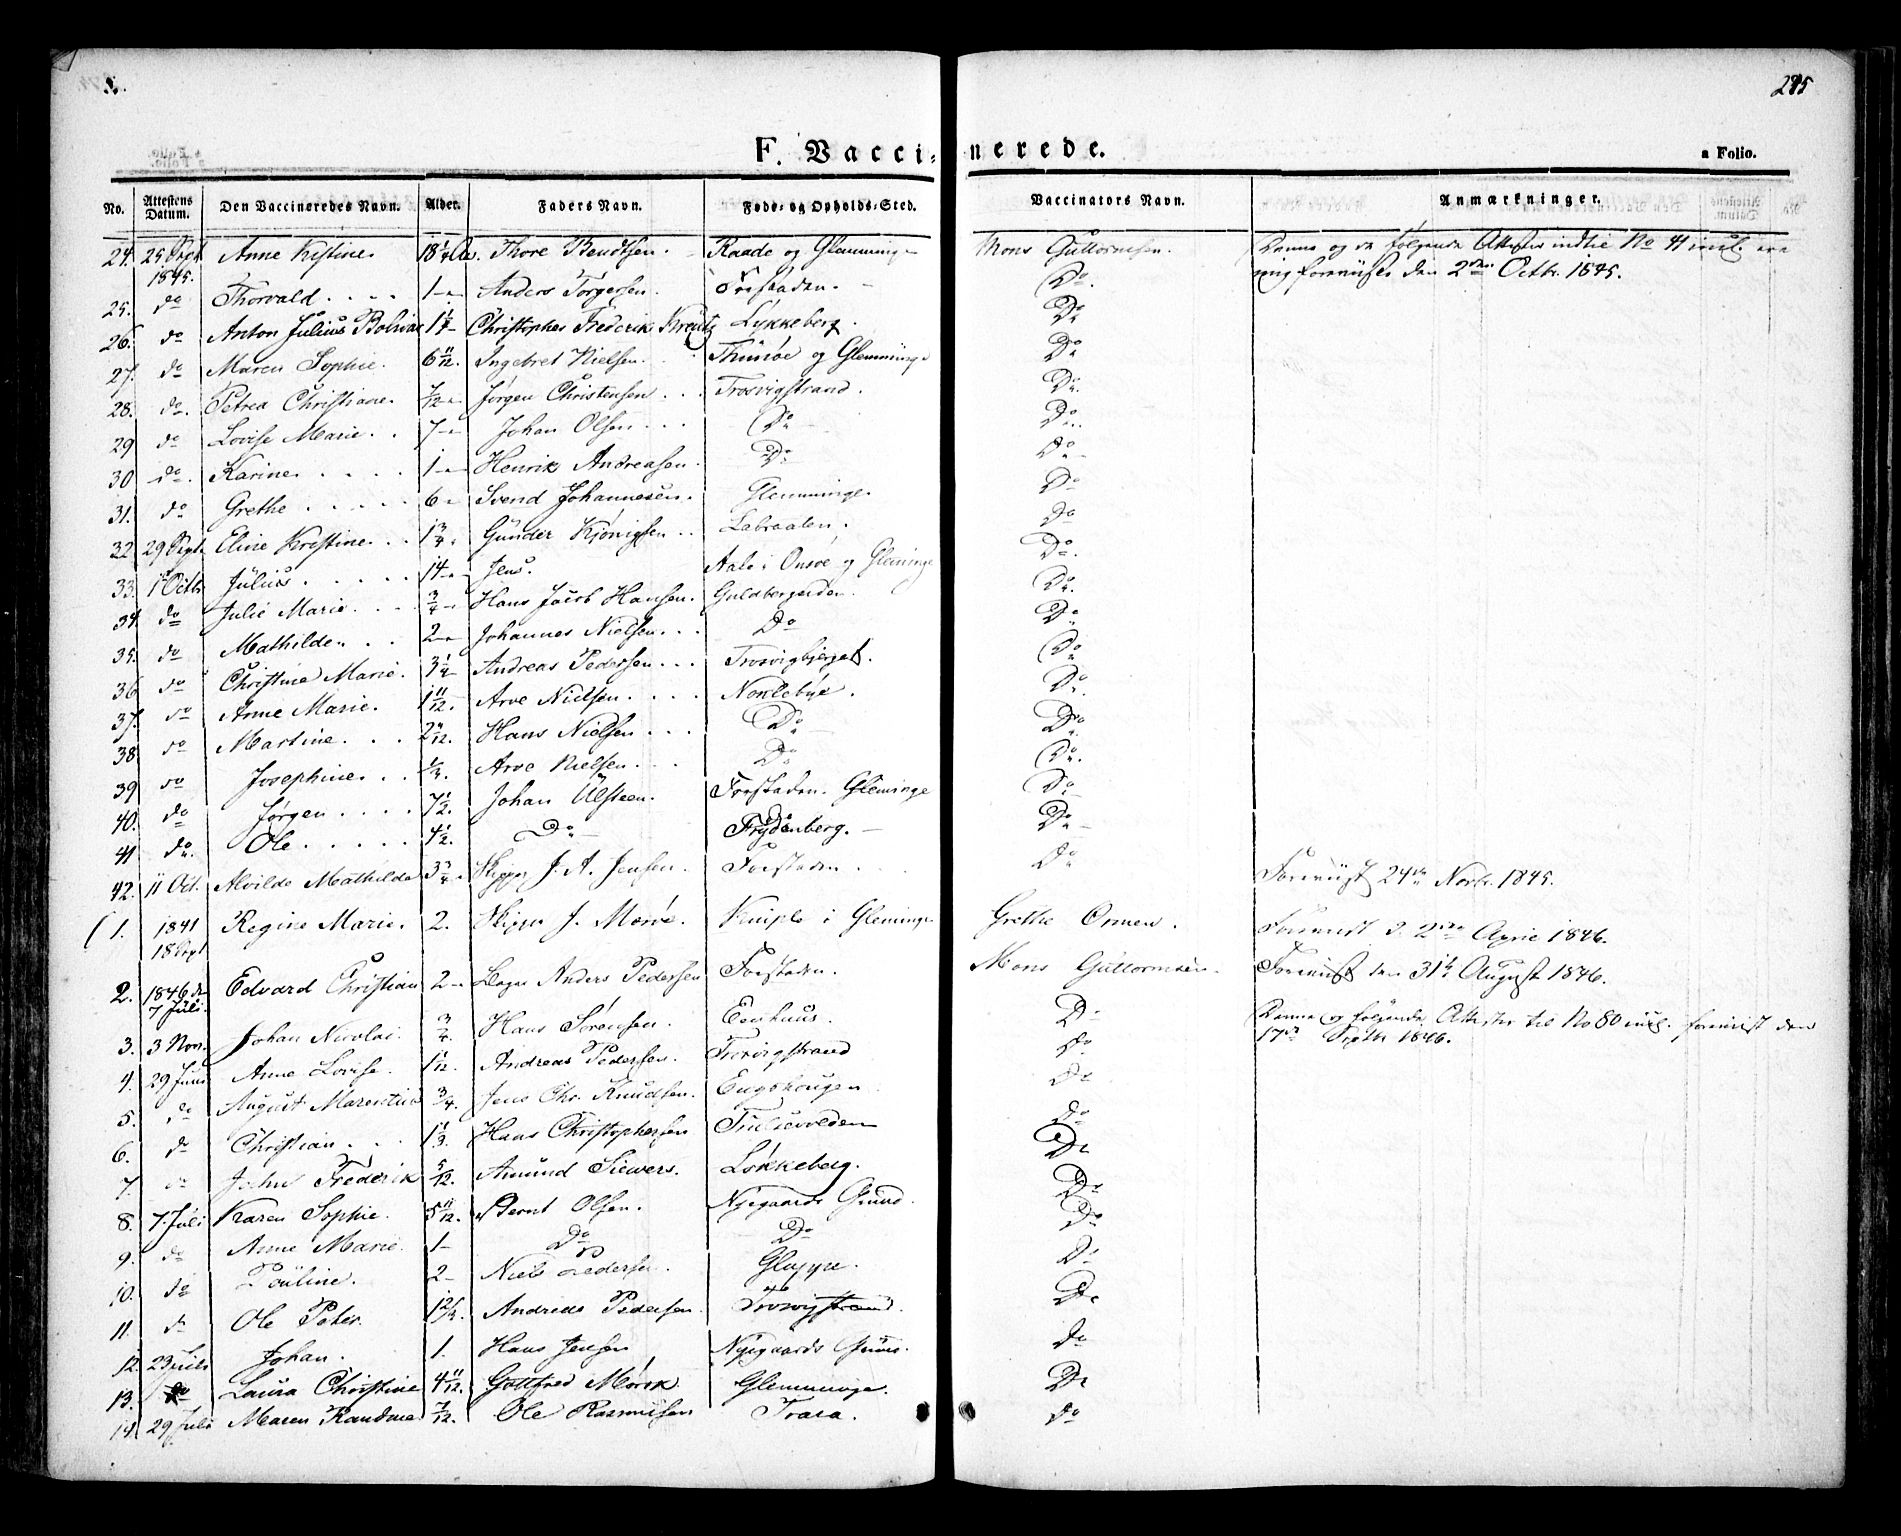 285
F. Vaccinerede.
a Folio.
No. Attestens Datum. Den Vaccineredes Navn. Alder. Faders Navn. Føde- og Opholds-Sted. Vaccinators Navn. Anmærkninger.
24. 25 Sept 1845. Anne Kristine 18 1/4 Aar. Thore Bendtsen. Raade og Glemminge Mons Guttormsen. Denne og de følgende Attester indtil No 41 incl. ere mig foreviiste den 2den Octbr. 1845.
25. do Thorvald . . . . 1 - Anders Torgersen. Forstaden. Do.
26. do Anton Julius Bolvius 1 1/4 Christopher Frederik Kreutz Lykkeberg. Do
27. do Maren Sophie. 6 11/12. Ingebret Nielsen. Thunøe og Glemminge Do
28. do. Petrea Christiane. 7/12 Jørgen Christensen . . Trosvigstrand. Do.
29 do Lovise Marie. . 7 - Johan Olsen . . . Do Do
30 do. Karine. . . . . 1 - Henrik Andreasen. Do Do
31. do Grethe . . . . . 6 - Svend Johannesen. Glemminge. Do
32 29 Sept. Eline Kristine. . . 1 3/4. Gunder Kjønigsen . . Labraaten. Do
33. 1 Octbr Julius . . . . . 14 - Jens. Aale i Onsøe og Gleminge Do.
34. do Julie Marie . . . 3/4 Hans Jacob Hansen. Guldbergsiden. Do.
35. do Mathilde. . . . 2 - Johannes Nielsen. . . Do Do
36 do Christine Marie. 3 1/4 Andreas Pedersen . . . Trosvigbjerget. Do
37. do Anne Marie. 1 11/12. Arve Nielsen. . . . Noklebye. Do.
38. do Martine. . . . 2 /12. Hans Nielsen . . . Do Do
39 do Josephine. . . 1/3. Arve Nielsen. . . . Do Do.
40. do Jørgen . . . . 7 1/2. Johan Ulsteen. Forstaden. Gleminge Do
41 do. Ole . . . . . 4 1/2. Do Frydenberg. Do
42. 11 Oct. Alvilde Mathilde 3 3/4 Skippr J. A. Jensen. Forstaden Do Foreviist 24de Novbr. 1845.
1. 1841 18 Sept Regine Marie. 2. Skippr J. Morøe. Kniple i Gleminge Grethe Ormen. Foreviist d. 2den April 1846.
2. 1846 d. 7 Juli. Edvard Christian 2 - Anders Pedersen Forstaden. Mons Guttormsen. Foreviist den 31te August 1846.
3. 3 Nov. Johan Nicolai. 3/4. Hans Sørensen. Eenhuus. Do Denne og følgende Attester til No 80 incl. foreviist den 17de Septbr 1846.
4. 29 Juni Anne Lovise. 1 /12. Andreas Pedersen. Trosvigstrand do.
5. do August Marentius 3/4. Jens Chr. Knudsen. Engehougen Do
6. do Christian . . . 1 1/3. Hans Christophersen Do
7. do John Frederik 5/12. Amund Siewers. Løkkeberg. Do
8. 7. Juli Karen Sophie. 5 11/12. Bernt Olsen. Nyegaards Grund. Do
9. do Anne Marie. 1 - Do Do Do
10. do Pouline. 2 - Niels Pedersen. Gluppe. Do
11. do Ole Peter. 1 2/3. Andreas Pedersen. Trosvigstrand. Do
12. 23 Juli Johan. 1. Hans Jensen Nyegaards Grund. do
13. do Laura Christine 4 11/12. Gottfred Mørck. Glemminge. Do
14. 29 Juli Maren Randine 7/12. Ole Rasmusen Trara. do